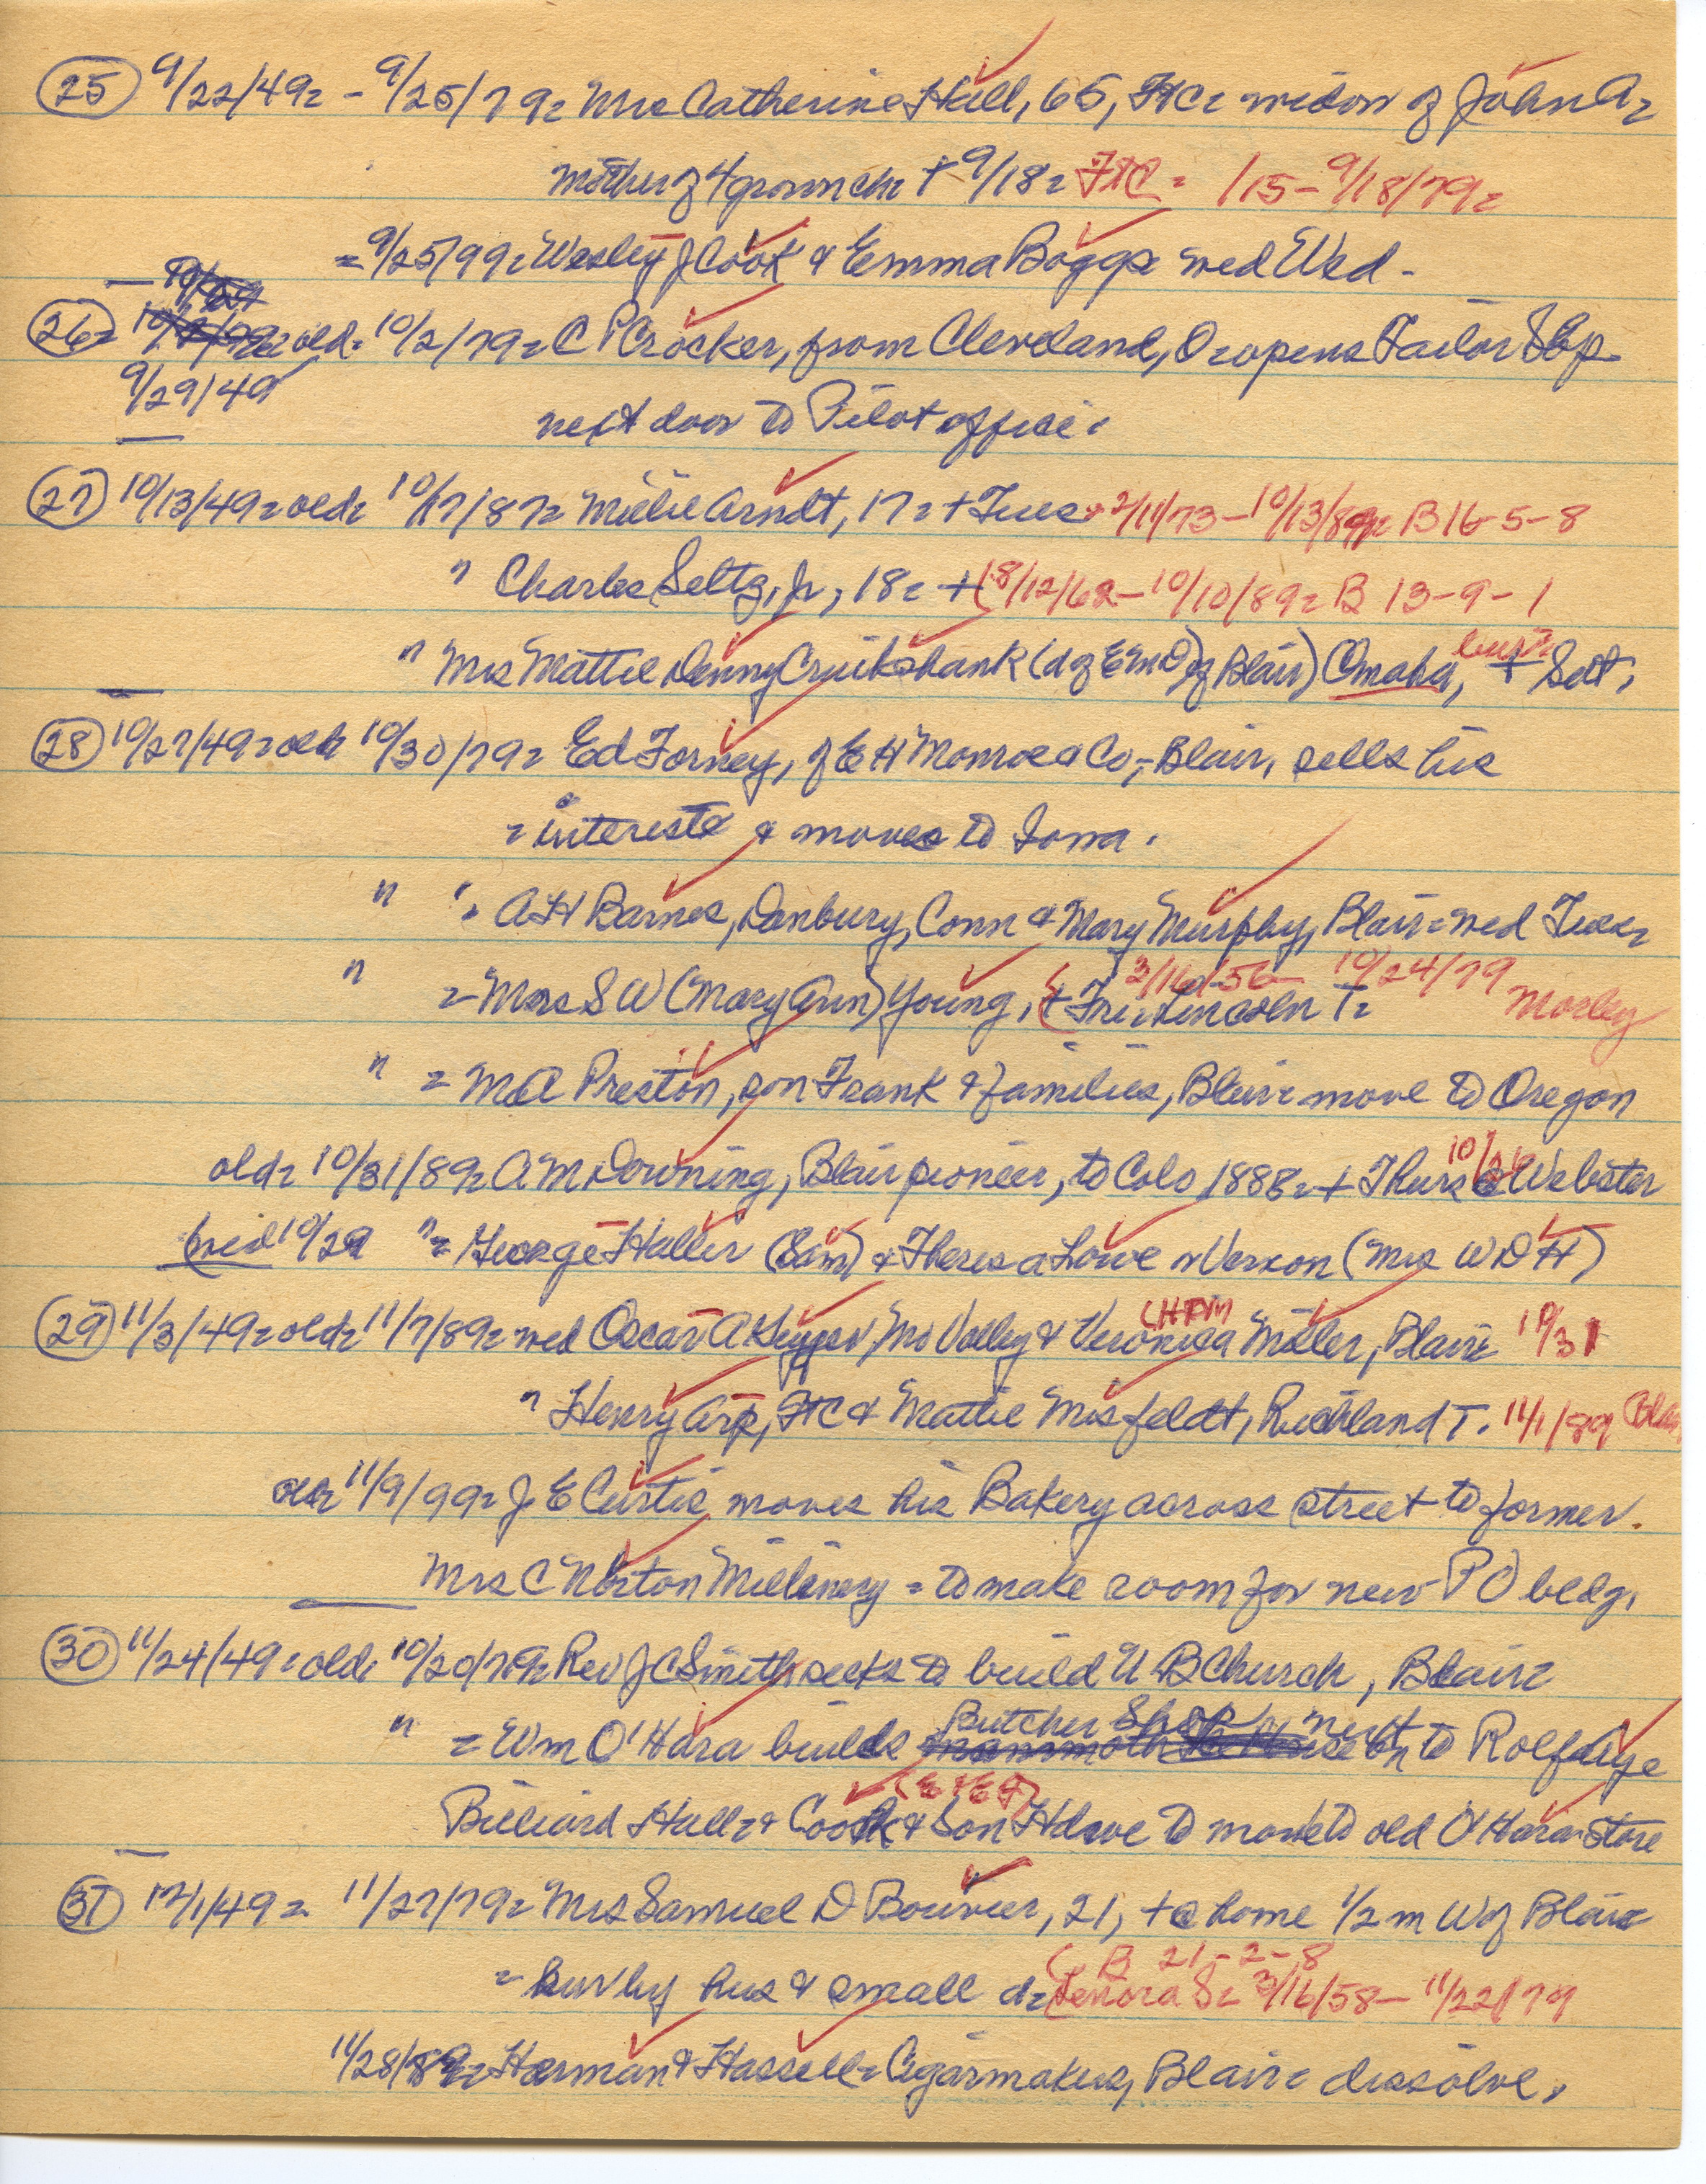 (25) 9/22/49 = - 9/25/79 = Mrs Catherine Hall, 65, FtC = widow of John A =
mother of 4 grown ch = + 9/18 = FtC = /15 - 9/18/79 =
= 9/25/99 = Wesley J Cook & Emma Boggs wed Wed -
(26) = old = 10/2/79 = C P Crocker, from Cleveland, O = opens Tailor Shop
9/29/49
next door to Pilot office.
(27) 10/13/49 = old = 10/17/89 = Millie Arndt, 17 = + Tues 2/11/73 - 10/13/89 = B 16-5-8
" Charles Seltz, Jr, 18 = + (8/12/62 - 10/10/89 = B 13-9-1
" Mrs Mattie Denny Cruikshank (d of E M D) of Blair) Omaha, + Sat,
(28) 10/27/49 = old = 10/30/79 = Ed Forney, of E H Monroe & Co, - Blair, sells his
= interests & moves to Iowa.
" " = A H Barnes, Danbury, Conn & Mary Murphy, Blair = wed Tues =
" = Mrs S W (Mary Ann) Young, + Fri = Lincoln T = 3/16/56 - 10/24/79 Morley
" = M A Preston, son Frank & families, Blair = move to Oregon
old = 10/31/89 = A M Downing, Blair pioneer, to Colo 1888 = + Thurs 10/ @ Webster
wed 10/29 " = George Haller (Sam) & Theresa Lowe = Vernon (Mrs W D H)
(29) 11/3/49 = old = 11/7/89 = wed Oscar A , Mo Valley & Veronica Miller, Blair = 10/31
(HPM
" Henry Arp, FtC & Mattie Misfeldt, Richland T. 11/1/89
old = 11/9/99 = J E Curtis moves his Bakery across street to former
Mrs C Norton Millinery = to make room for new P O bldg.
(30) 11/24/49 = old = 10/20/79 = Rev J C Smith seeks to build U B Church, Blair =
" = Wm O'Hara builds Butcher Shop next to Rolf Aye
Billiard Hall = & Cook & Son Hdwe to move to old O'Hara store
(31) 12/1/49 = 11/27/79 = Mrs Samuel D Bouvier, 21, + @ home 1/2 m W of Blair
= surv by hus & small d = (Lenora S = 3/16/58 - 11/22/79
( B 21-2-8
11/28/89 = Herman & Hassell = Cigarmakers, Blair = dissolve,